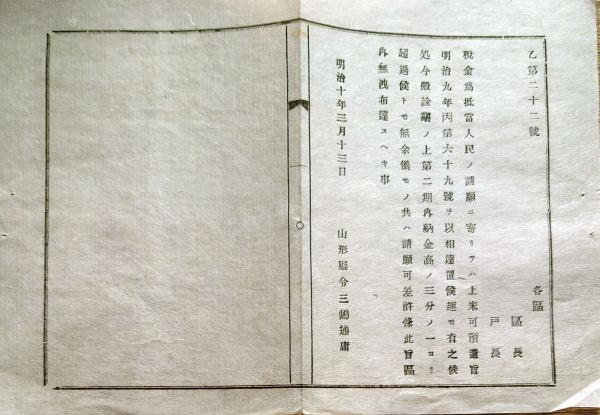 乙第二十二號
各區
區長
戸長
税金爲抵當人民ノ請願ニ寄リテハ上米可預置旨
明治九年丙第六十九號ヲ以相達置候趣モ有之候
処今般詮議ノ上第二期内納金高ノ三分ノ一ヨリ
超過候トモ無余儀モノ共ハ請願可差許條此旨區
内無洩布達スヘキ事
明治十年三月十三日
山形縣令三島通庸